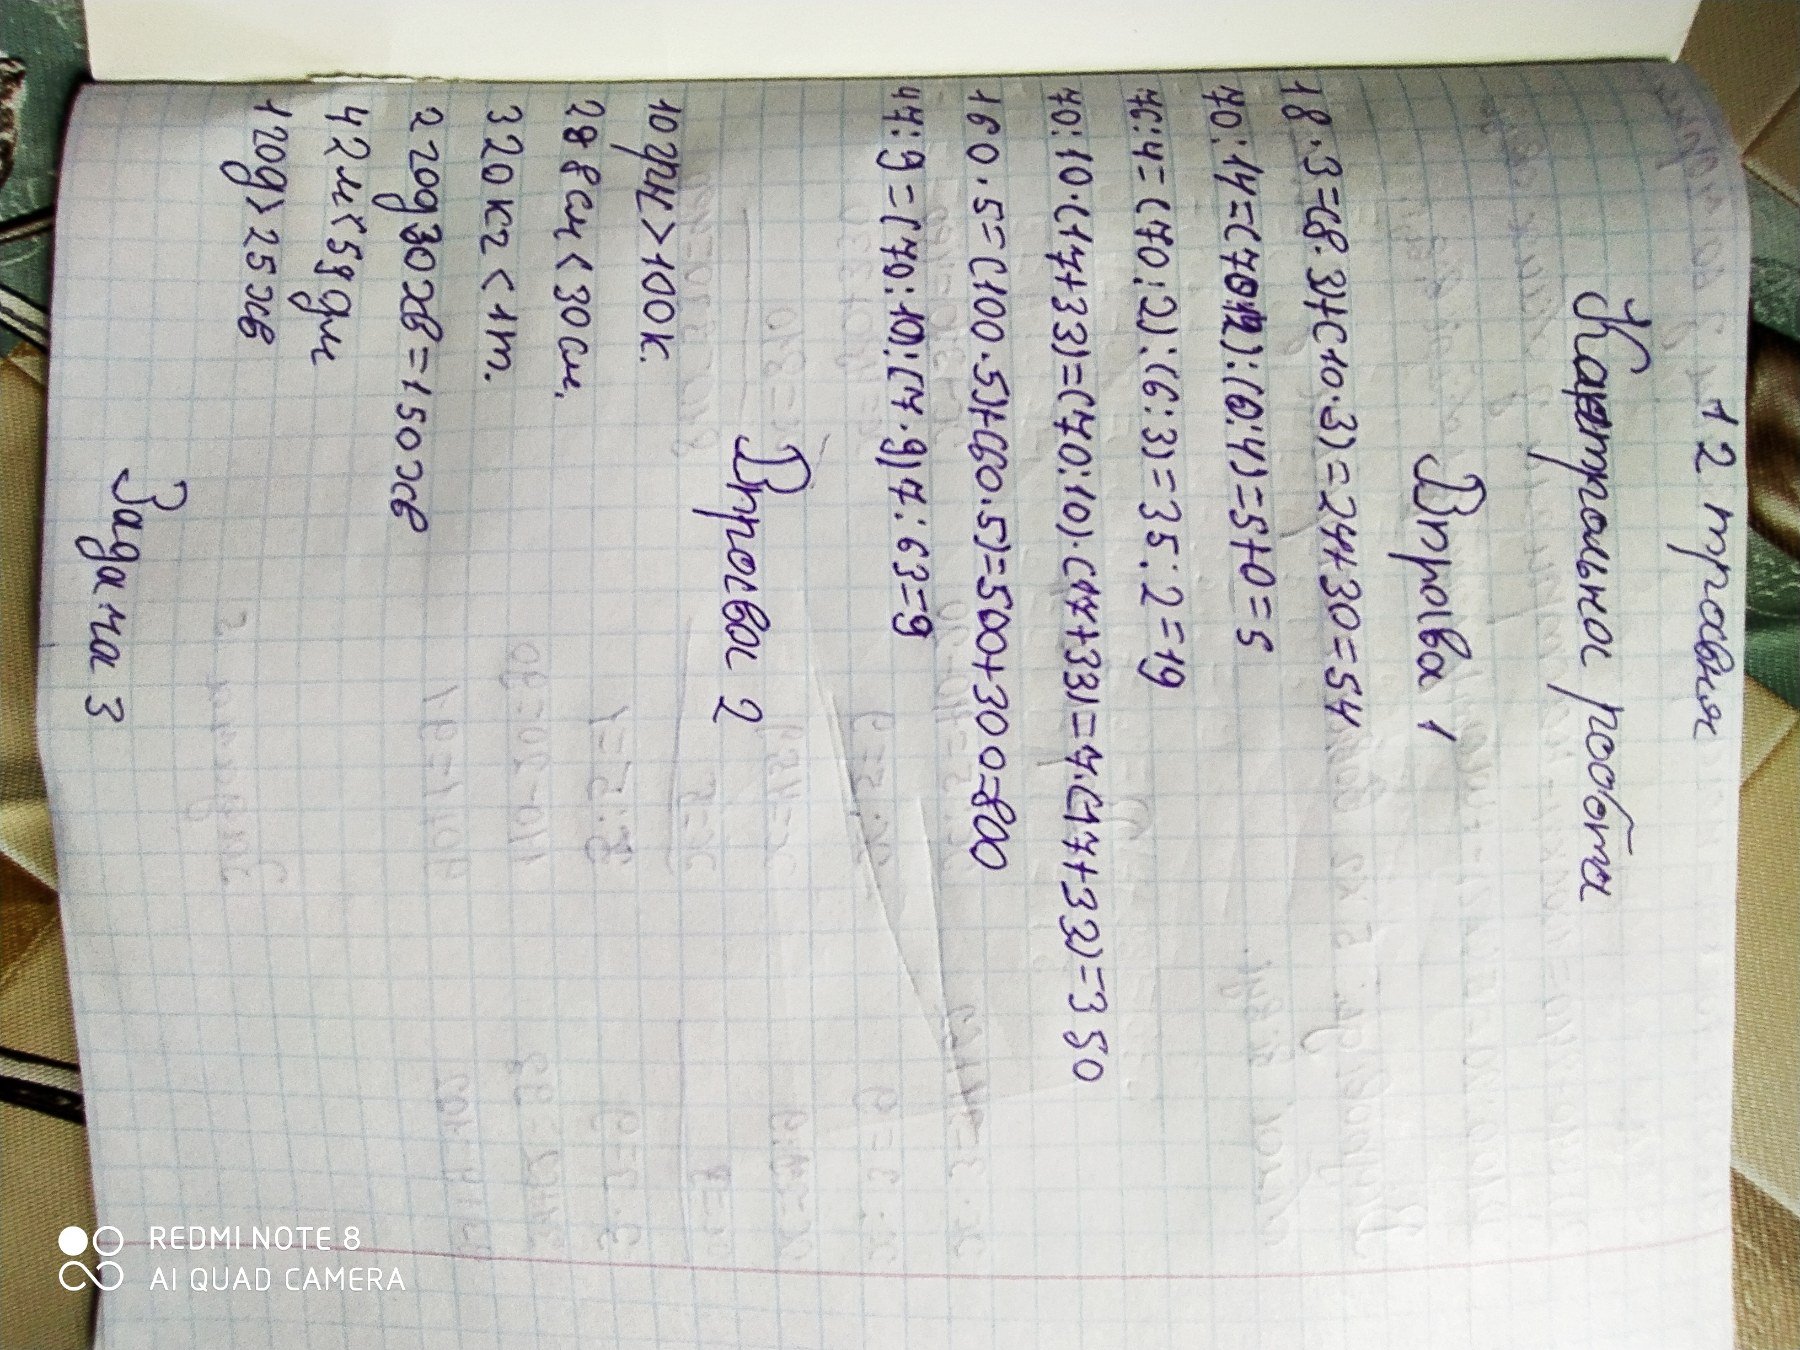 12 травня
Контрольна робота
Вправа 1
18·3=(8·3)+(10·3)=24+30=54
70:14=(70:2):(0:4)=5+0=5
76:4=(70:2):(6:3)=35:2=19
70:10·(17+33)=(70:10)·(17+33)=7·(17+33)=350
160·5=(100·5)+(60·5)=500+300=800
:9=(70:10:(7·9)7:63=9
Вправа 2
10грн>100к.
288см<30см.
320кг<1т.
2 год30хв=150хв
42м<5дм
120д>25хв
Задача 3
REDMI NOTE 8
AI QUAD CAMERA